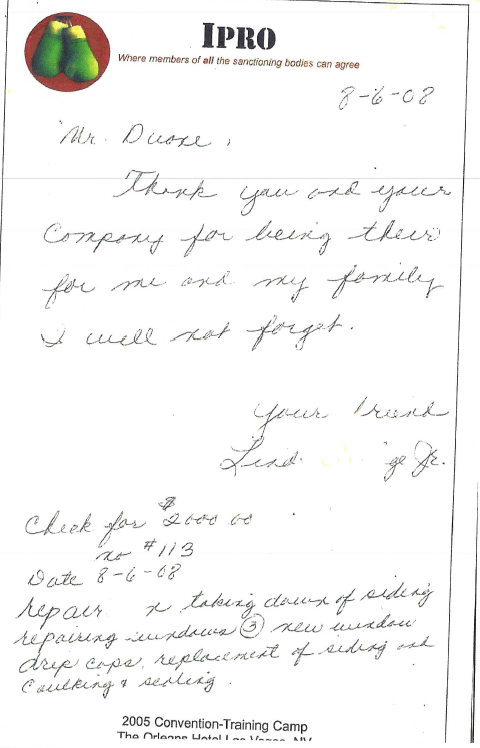 IPRO
Where members of all the sanctioning bodies can agree
8-6-08
Mr. Duane,
Thank you and your
Company for being their
for me and my family
I well not forget.
Your Friend
Jr.
Check for $2000.00
no #113
Date 8-6-08
repair taking down of siding
repairing windows ③ new window
drip caps, replacement of siding and
Caulking & sealing.
2005 Convention-Training Camp
The Orleans Hotel Las Vegas, NV